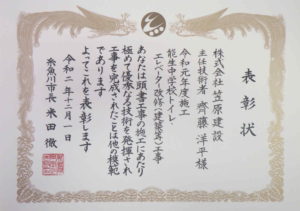 表彰状
株式会社 笠原建設
主任技術者 齊藤洋平様
令和元年度施工
能生中学校トイレ
エレベータ改修(建築等)工事
あなたは頭書工事の施工にあたり
極めて優秀なる技術を発揮され
工事を完成されたことは他の模範
であります
よってこれを表彰します
令和二年十二月一日
糸魚川市長 米田徹